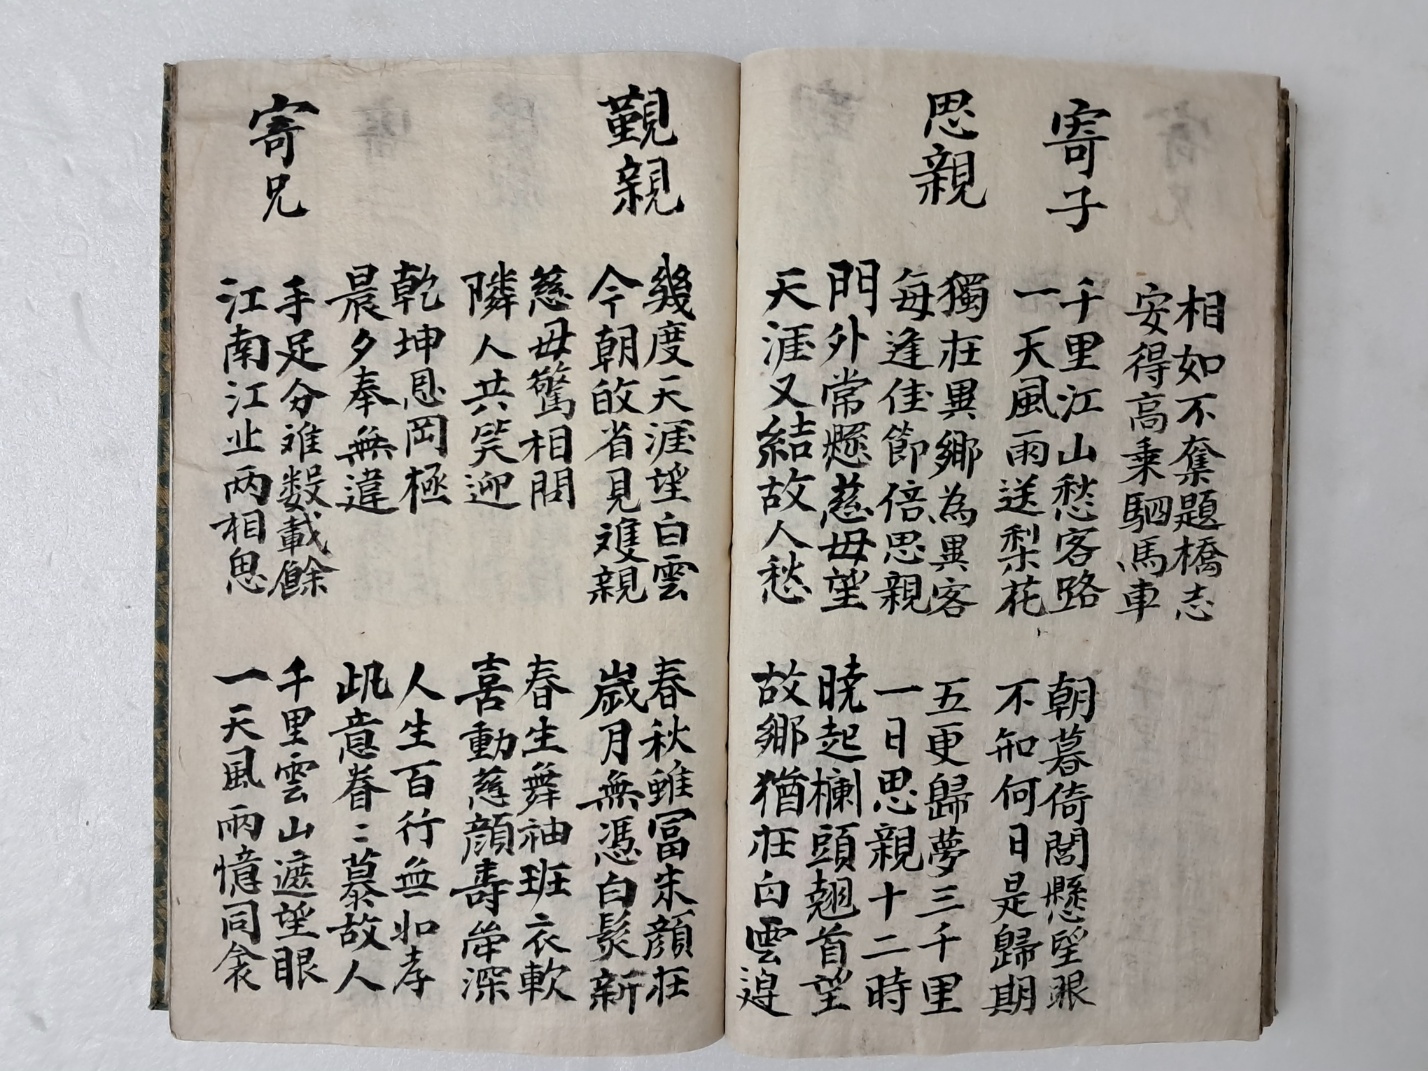 相如不奪題橋志
安得高乗駟馬車
寄子
千里江山愁客路
一天風雨送梨花
朝暮倚閭懸望眼
不知何日是歸期
思親
獨在異鄉為異客
每逢佳節倍思親
五更歸夢三千里
一日思親十二時
門外常懸慈母望
天涯又結故人愁
曉起欄頭翹首望
故鄉猶在白雲邉
覲親
幾度天涯望白雲
今朝敀省見雙親
春秋雖冨朱顔在
歲月無憑白髪新
慈母驚相問
隣人共笑迎
春生舞袖班衣軟
喜動慈顔壽斚深
乾坤恩罔極
晨夕奉無違
人生百行無如孝
此意眷〻慕故人
寄兄
手足分难数載餘
江南江北两相思
千里雲山遮望眼
一天風雨憶同衾